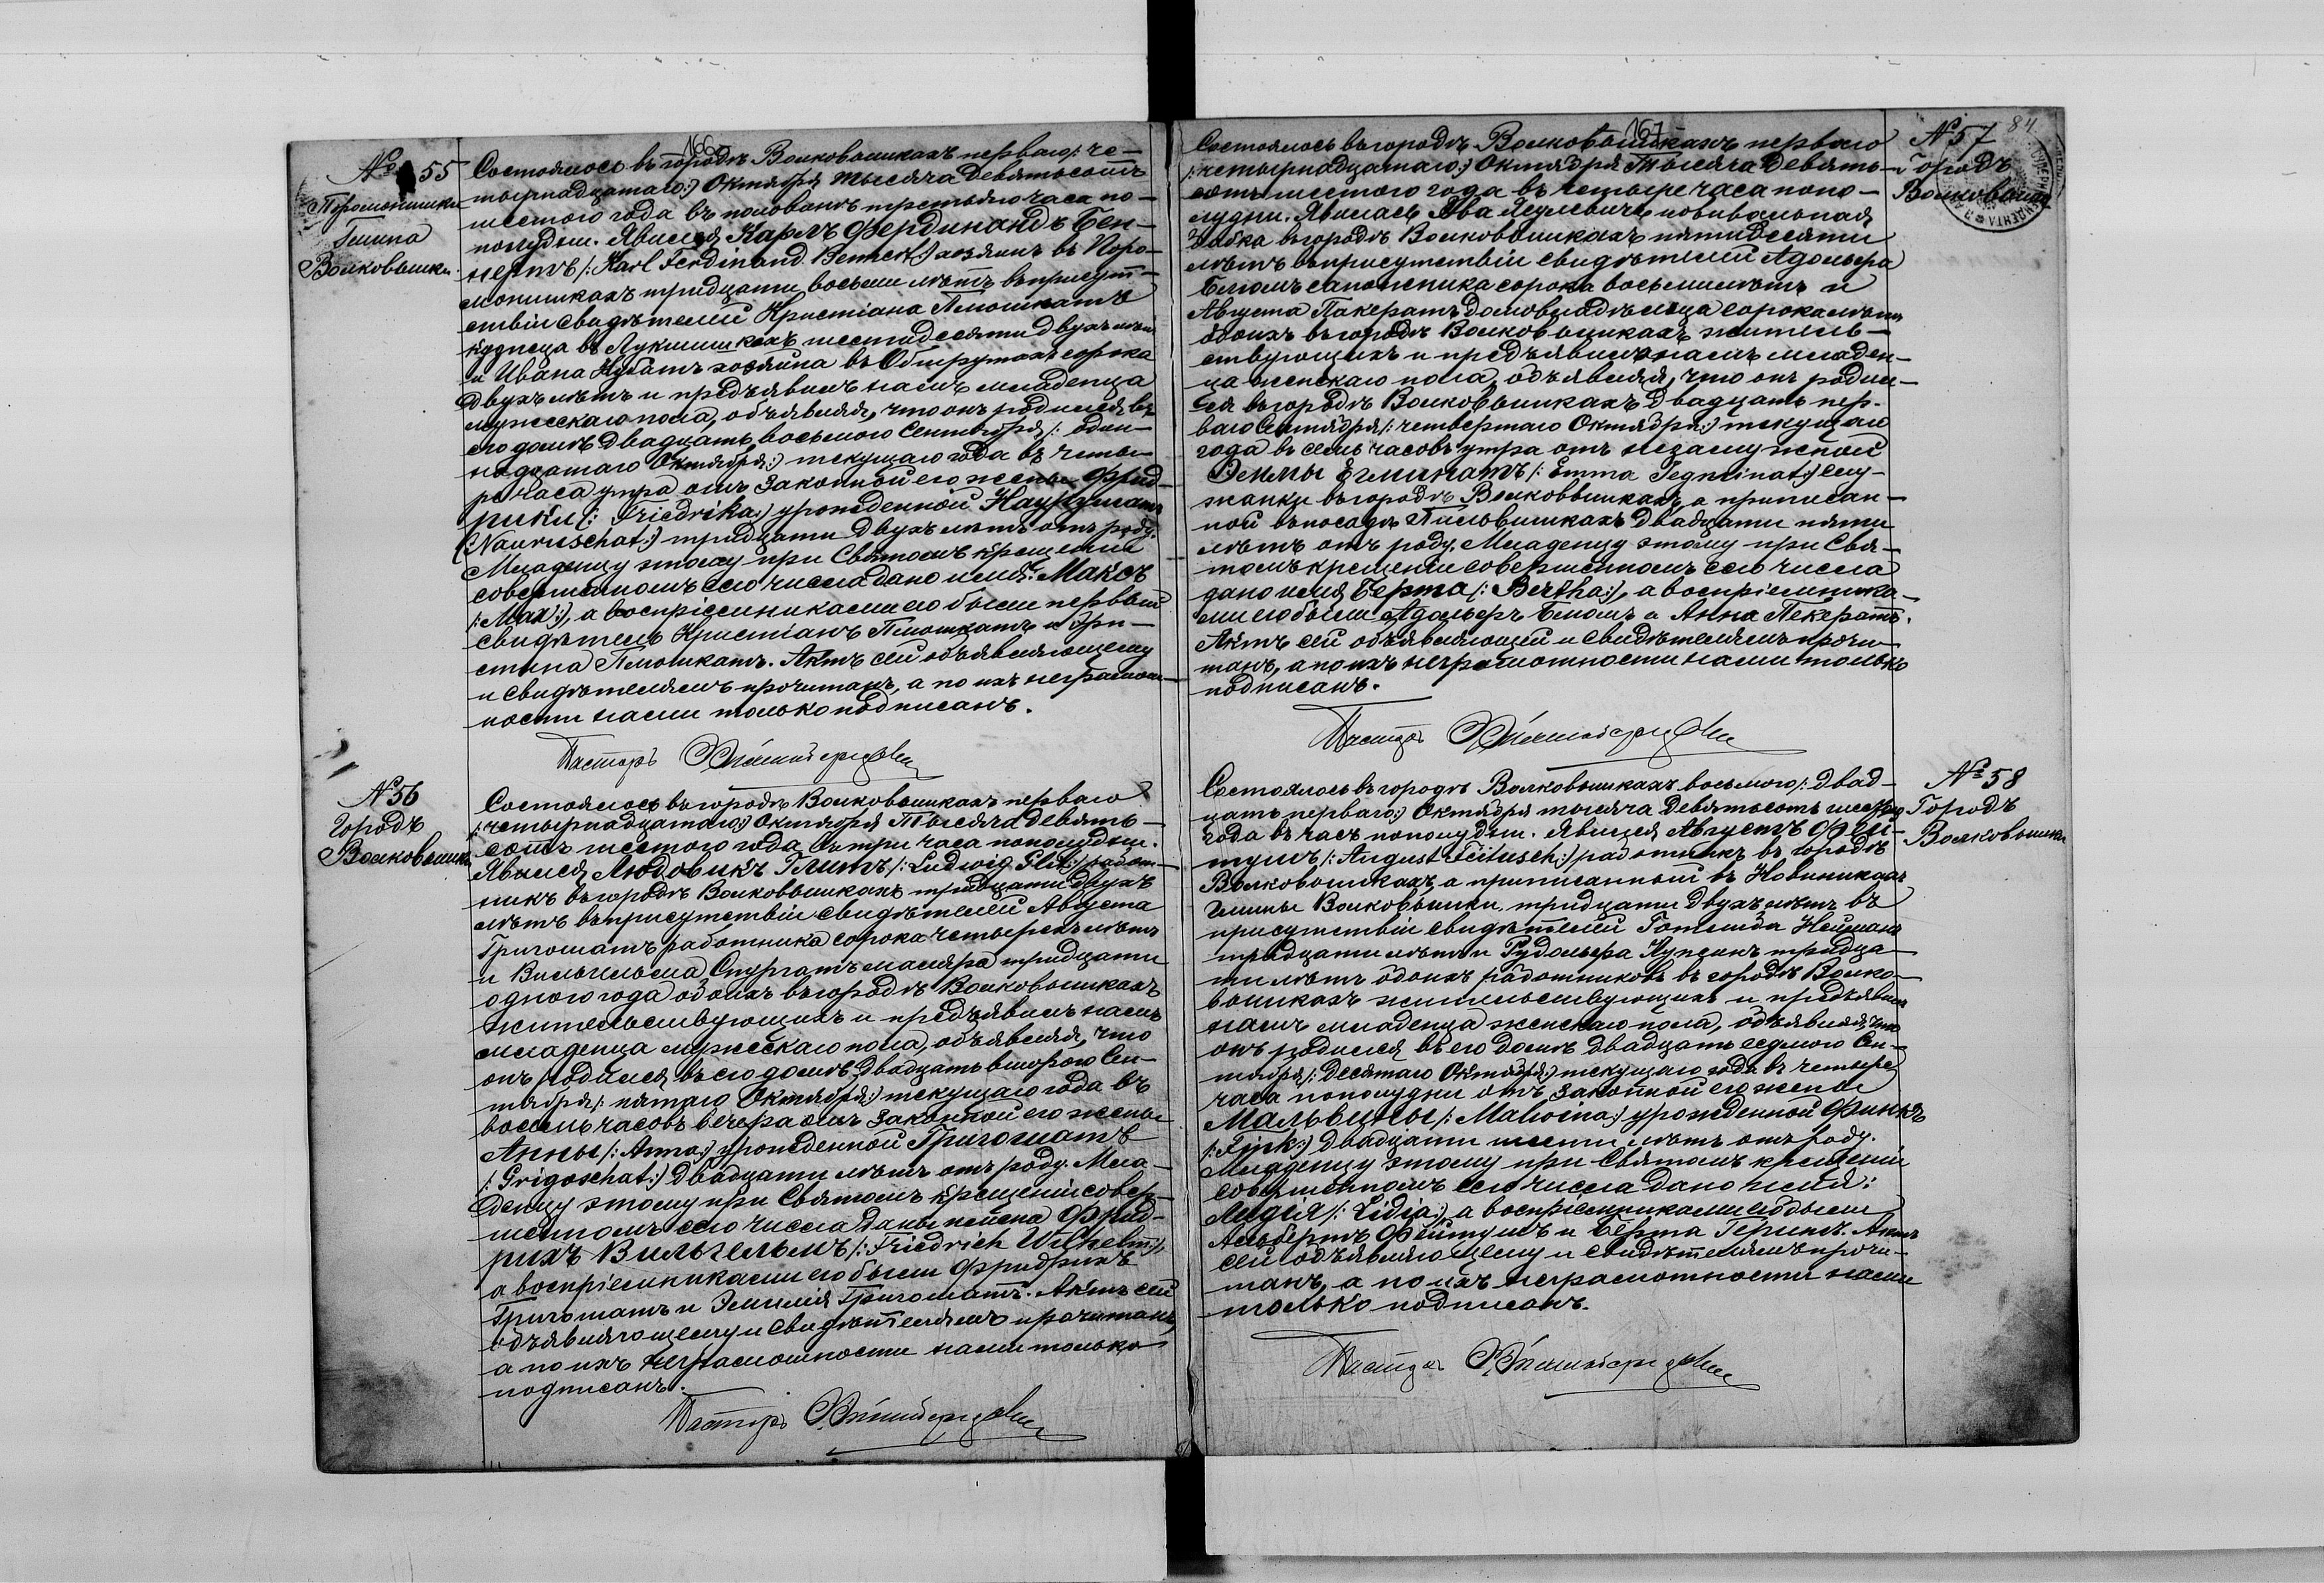 166
№ 55
Поромонишки
Гмина
Волковышки.
Состоялось въ городѣ Волковышкахъ перваго /: че-
тырнадцатаго:/ Октября тысяча девятьсотъ
шестого года въ половинѣ третьяго часа по-
полудни. Явился Карлъ Фердинандъ Бен-
нертъ /: Karl Ferdinand Bennert:/ хозяинъ въ Поро-
монишкахъ тридцати восьми лѣтъ въ присут-
ствіи свидѣтелей Христіана Плошкатъ
кузнеца въ Лукшишкахъ шестидесяти двухъ лѣтъ
и Ивана хозяина въ сорока
двухъ лѣтъ и предъявилъ намъ младенца
мужескаго пола, объявляя, что онъ родился въ
его домѣ двадцать восьмого Сентября /: один-
надцатаго Октября:/ текущаго года въ четы-
ре часа утра отъ законной его жены Фрид-
рики /: Friedrika:/ урожденной
тридцати двухъ лѣтъ отъ роду.
Младенцу этому при Святомъ крещеніи
совершенномъ сего числа дано имя: Максъ
/: Max:/, а воспріемниками его были первый
свидѣтель Христіанъ Плошкатъ и Кри-
стина Плошкатъ. Актъ сей объявляющему
и свидѣтелямъ прочитанъ, а по ихъ неграмот-
ности нами только подписанъ.
Пасторъ
№ 56
Городъ
Волковышки
Состоялось въ городѣ Волковышкахъ перваго
/: четырнадцатаго:/ Октября Тысяча девять-
сотъ шестого года въ три часа пополудни.
Явился Людовикъ Глитъ /: Ludwig Glit:/ работ-
никъ въ городѣ Волковышкахъ тридцати двухъ
лѣтъ въ присутствіи свидѣтелей Августа
Григошатъ работника сорока четырехъ лѣтъ
и Вильгельма Спургатъ маляра тридцати
одного года обоихъ въ городѣ Волковышкахъ
жительствующихъ и предъявилъ намъ
младенца мужескаго пола, объявляя, что
онъ родился въ его домѣ двадцать второго Сен-
тября /: пятаго Октября:/ текущаго года въ
восемь часовъ вечера отъ законной его жены
Анны /: Anna:/ урожденной Григошатъ
/: Grigoschat:/ двадцати лѣтъ отъ роду. Мла-
денцу этому при Святомъ крещеніи совер-
шенномъ сего числа даны имена Фрид-
рихъ Вильгельмъ /: Friedrich Wilhelm:/,
а воспріемниками его были Фридрихъ
Григошатъ и Эмилія Григошатъ. Актъ сей
объявляющему и свидѣтелямъ прочитанъ,
а по ихъ неграмотности нами только
подписанъ.
Пасторъ
167
84
№ 57
Городъ
Волковышки
Состоялось въ городѣ Волковышкахъ перваго
/: четырнадцатаго:/ Октября Тысяча девять-
сотъ шестого года въ четыре часа попо-
лудни. Явилась Ева повивальная
бабка въ городѣ Волковышкахъ пятидесяти
лѣтъ въ присутствіи свидѣтелей Адольфа
Блюмъ сапожника сорока восьми лѣтъ и
Августа Пакератъ домовладѣльца сорока лѣтъ
обоихъ въ городѣ Волковышкахъ житель-
ствующихъ и предъявила намъ младен-
ца женскаго пола, объявляя, что онъ родил-
ся въ городѣ Волковышкахъ двадцать пер-
ваго Сентября /: четвертаго Октября:/ текущаго
года въ семь часовъ утра отъ незамужней
Эммы Егминатъ /: Emma Jegminat:/ слу-
жанки въ городѣ Волковышкахъ, а приписан-
ной въ посадѣ Пильвишкахъ двадцати пяти
лѣтъ отъ роду. Младенцу этому при Свя-
томъ крещеніи совершенномъ сего числа
дано имя Берта /: Bertha:/, а воспріемника-
ми его были Адольфъ Блюмъ и Анна Пекератъ.
Актъ сей объявляющей и свидѣтелямъ прочи-
танъ, а по ихъ неграмотности нами только
подписанъ.
Пасторъ
№ 58
Городъ
Волковышки
Состоялось въ городѣ Волковышкахъ восьмого /: двад-
цать перваго:/ Октября тысяча девятьсотъ шестого
года въ часъ пополудни. Явился Августъ Фей-
тушъ /: August Feitusch:/ работникъ въ городѣ
Волковышкахъ, а приписанный въ Новиникахъ
гмины Волковышки, тридцати двухъ лѣтъ въ
присутствіи свидѣтелей Готлиба Нейманъ
тридцати лѣтъ и Рудольфа тридца-
ти лѣтъ обоихъ работниковъ въ городѣ Волко-
вышкахъ жительствующихъ и предъявилъ
намъ младенца женскаго пола, объявляя, что
онъ родился въ его домѣ двадцать седьмого Сен-
тября /: десятаго Октября:/ текущаго года въ четыре
часа пополудни отъ законной его жены
Мальвины /: Malwina:/ урожденной Финкъ
/: Fink:/ двадцати шести лѣтъ отъ роду.
Младенцу этому при Святомъ крещеніи
совершенномъ сего числа дано имя:
Лидія /: Lidia:/, а воспріемниками его были
Альбертъ Фейтушъ и Берта Герингъ. Актъ
сей объявляющему и свидѣтелямъ прочи-
танъ, а по ихъ неграмотности нами
только подписанъ.
Пасторъ